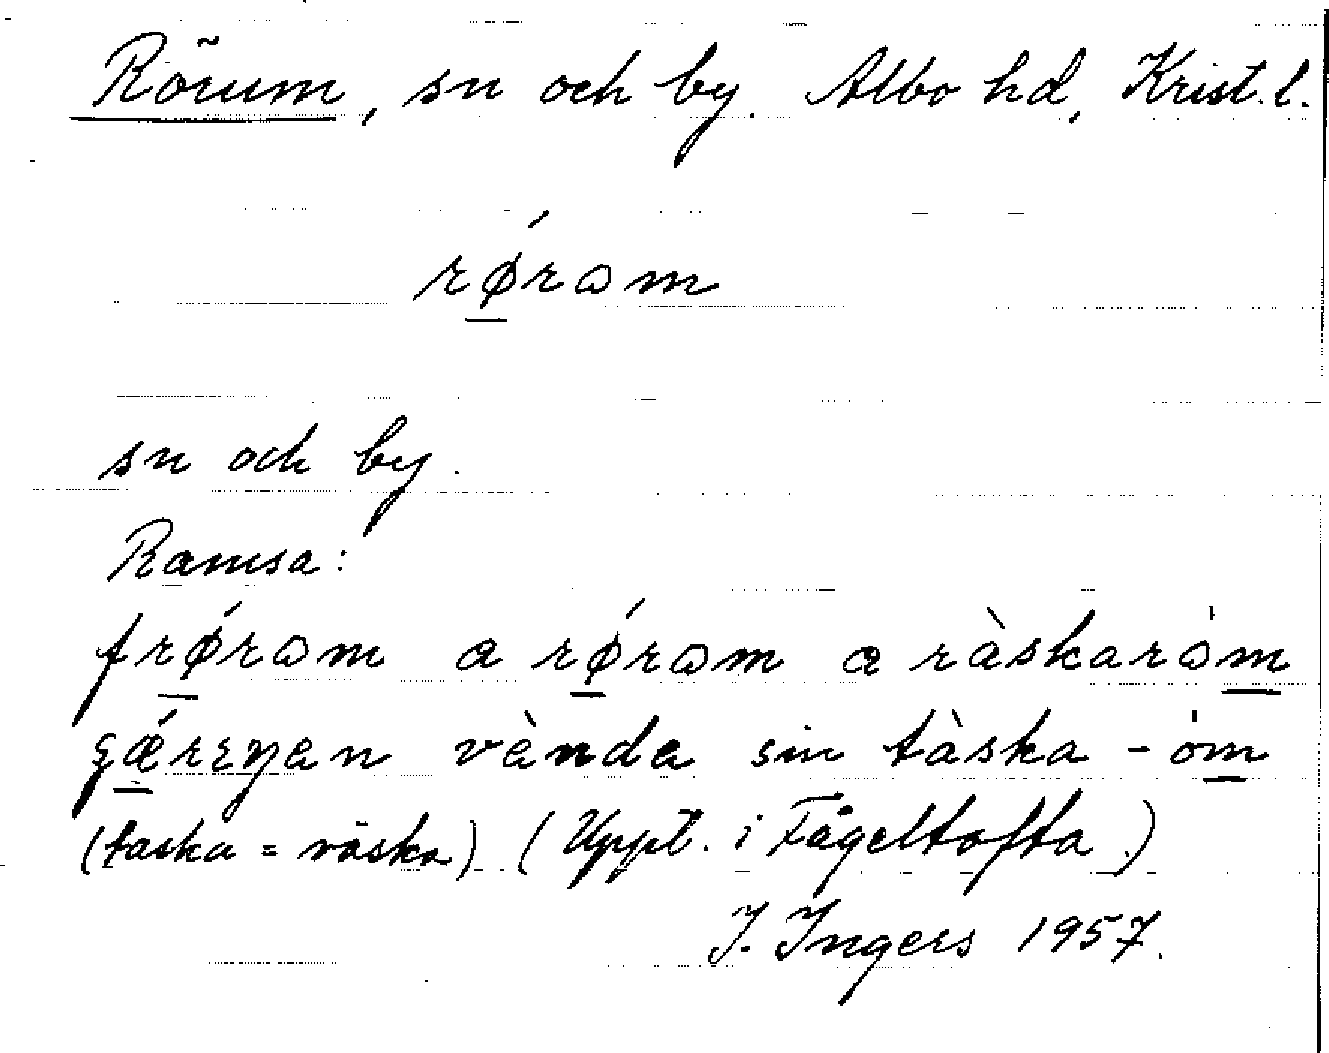 Rörum, sn och by. Albo hd, Krist. l.
rǿ̱rɷm
sn och by.
Ramsa:
frǿ̱rɷm a rǿ̱rɷm a ràskarɷ̀m̱
gǽ̱rɛŋan vènda sin tàska - òm̱
(taska = väska) (Uppt. i Fågeltofta.)
J. Ingers 1957.